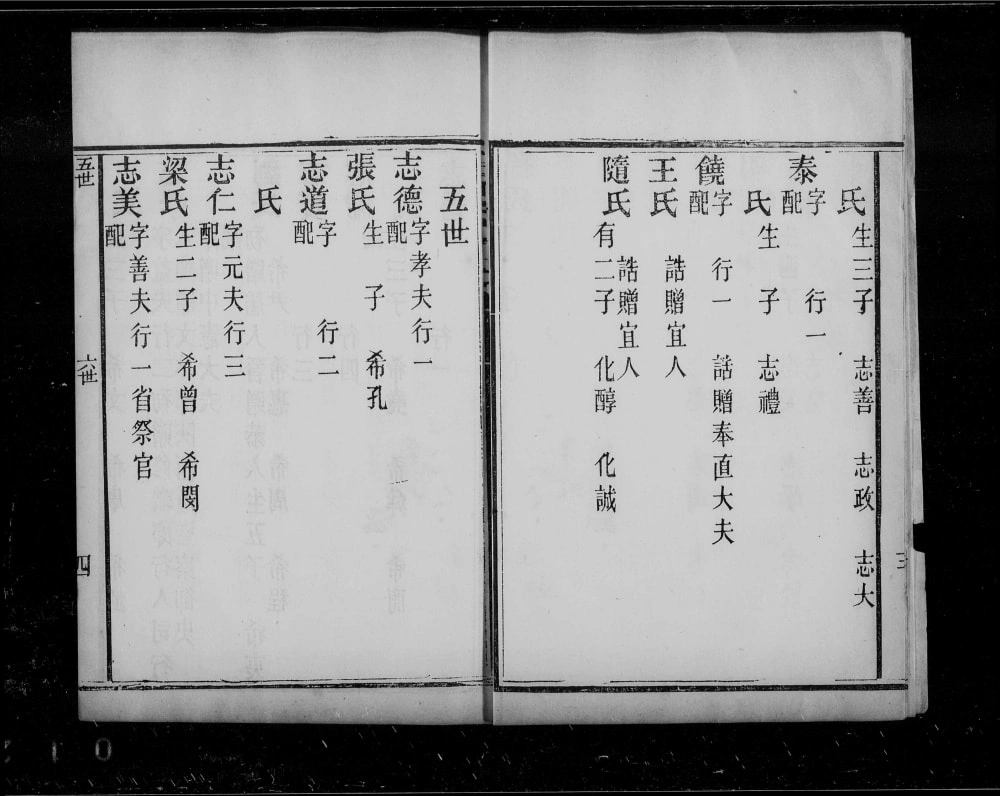 氏生三子 志善 志政 志大
泰字 行一
配
氏生 子 志禮
饒字 行一 誥贈奉直大夫
配
王氏 誥贈宜人
誥贈宜人
隨氏有二子 化醇 化誠
三
五世
志德字孝夫行一
配
張氏生 子 希孔
志道字 行二
配
氏
志仁字元夫行三
配
梁氏生二子 希曾 希閔
志美字善夫行一省祭官
配
五世 六世 四